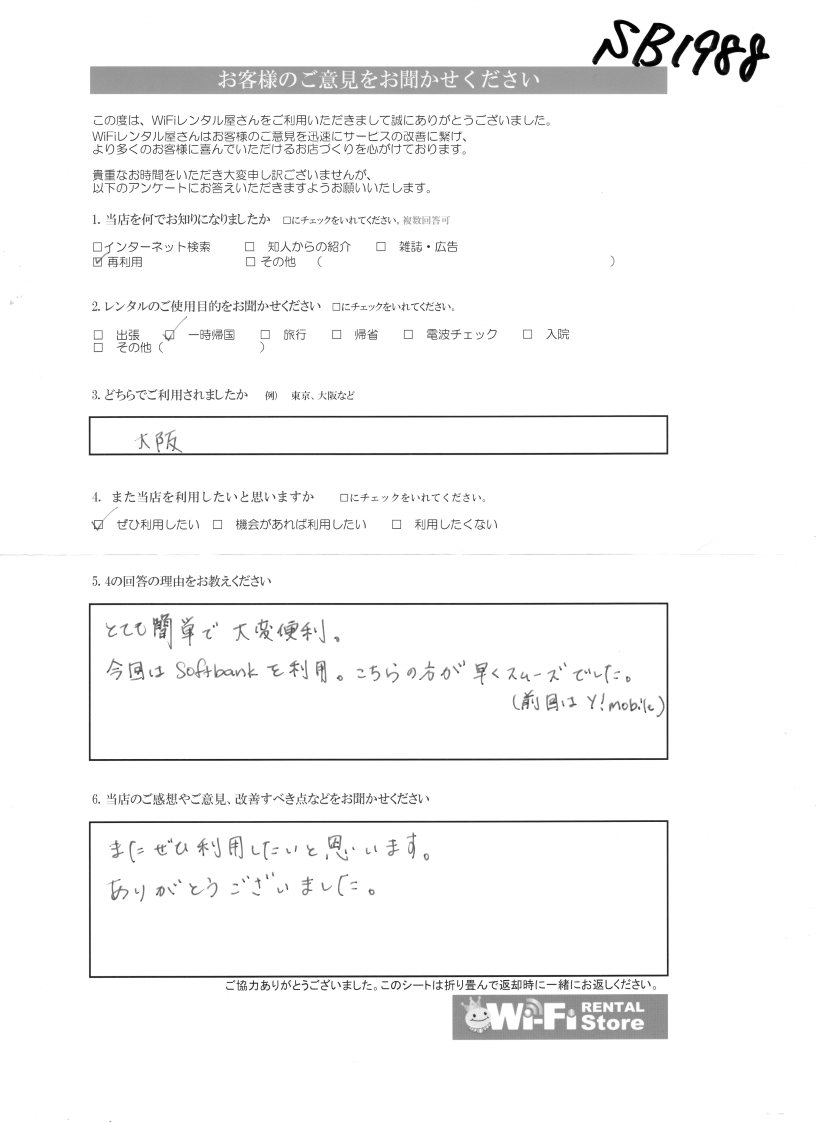 SB1988
お客様のご意見をお聞かせください
この度は、WiFiレンタル屋さんをご利用いただきまして誠にありがとうございました。
WiFiレンタル屋さんはお客様のご意見を迅速にサービスの改善に繋げ、
より多くのお客様に喜んでいただけるお店づくりを心がけております。
貴重なお時間をいただき大変申し訳ございませんが、
以下のアンケートにお答えいただきますようお願いいたします。
1. 当店を何でお知りになりましたか □にチェックをいれてください。複数回答可
□インターネット検索 □ 知人からの紹介 □ 雑誌・広告
☑再利用 □その他 （ ）
2. レンタルのご使用目的をお聞かせください □にチェックをいれてください。
□ 出張 ☑ 一時帰国 □ 旅行 □ 帰省 □ 電波チェック □ 入院
□ その他（ ）
3. どちらでご利用されましたか 例） 東京、大阪など
大阪
4. また当店を利用したいと思いますか □にチェックをいれてください。
☑ ぜひ利用したい □ 機会があれば利用したい □ 利用したくない
5. 4の回答の理由をお教えください
とても簡単で大変便利。
今回はSoftbankを利用。こちらの方が早くスムーズでした。
（前回はY!mobile）
6. 当店のご感想やご意見、改善すべき点などをお聞かせください
またぜひ利用したいと思います。
ありがとうございました。
ご協力ありがとうございました。このシートは折り畳んで返却時に一緒にお返しください。
Wi-Fi RENTAL Store